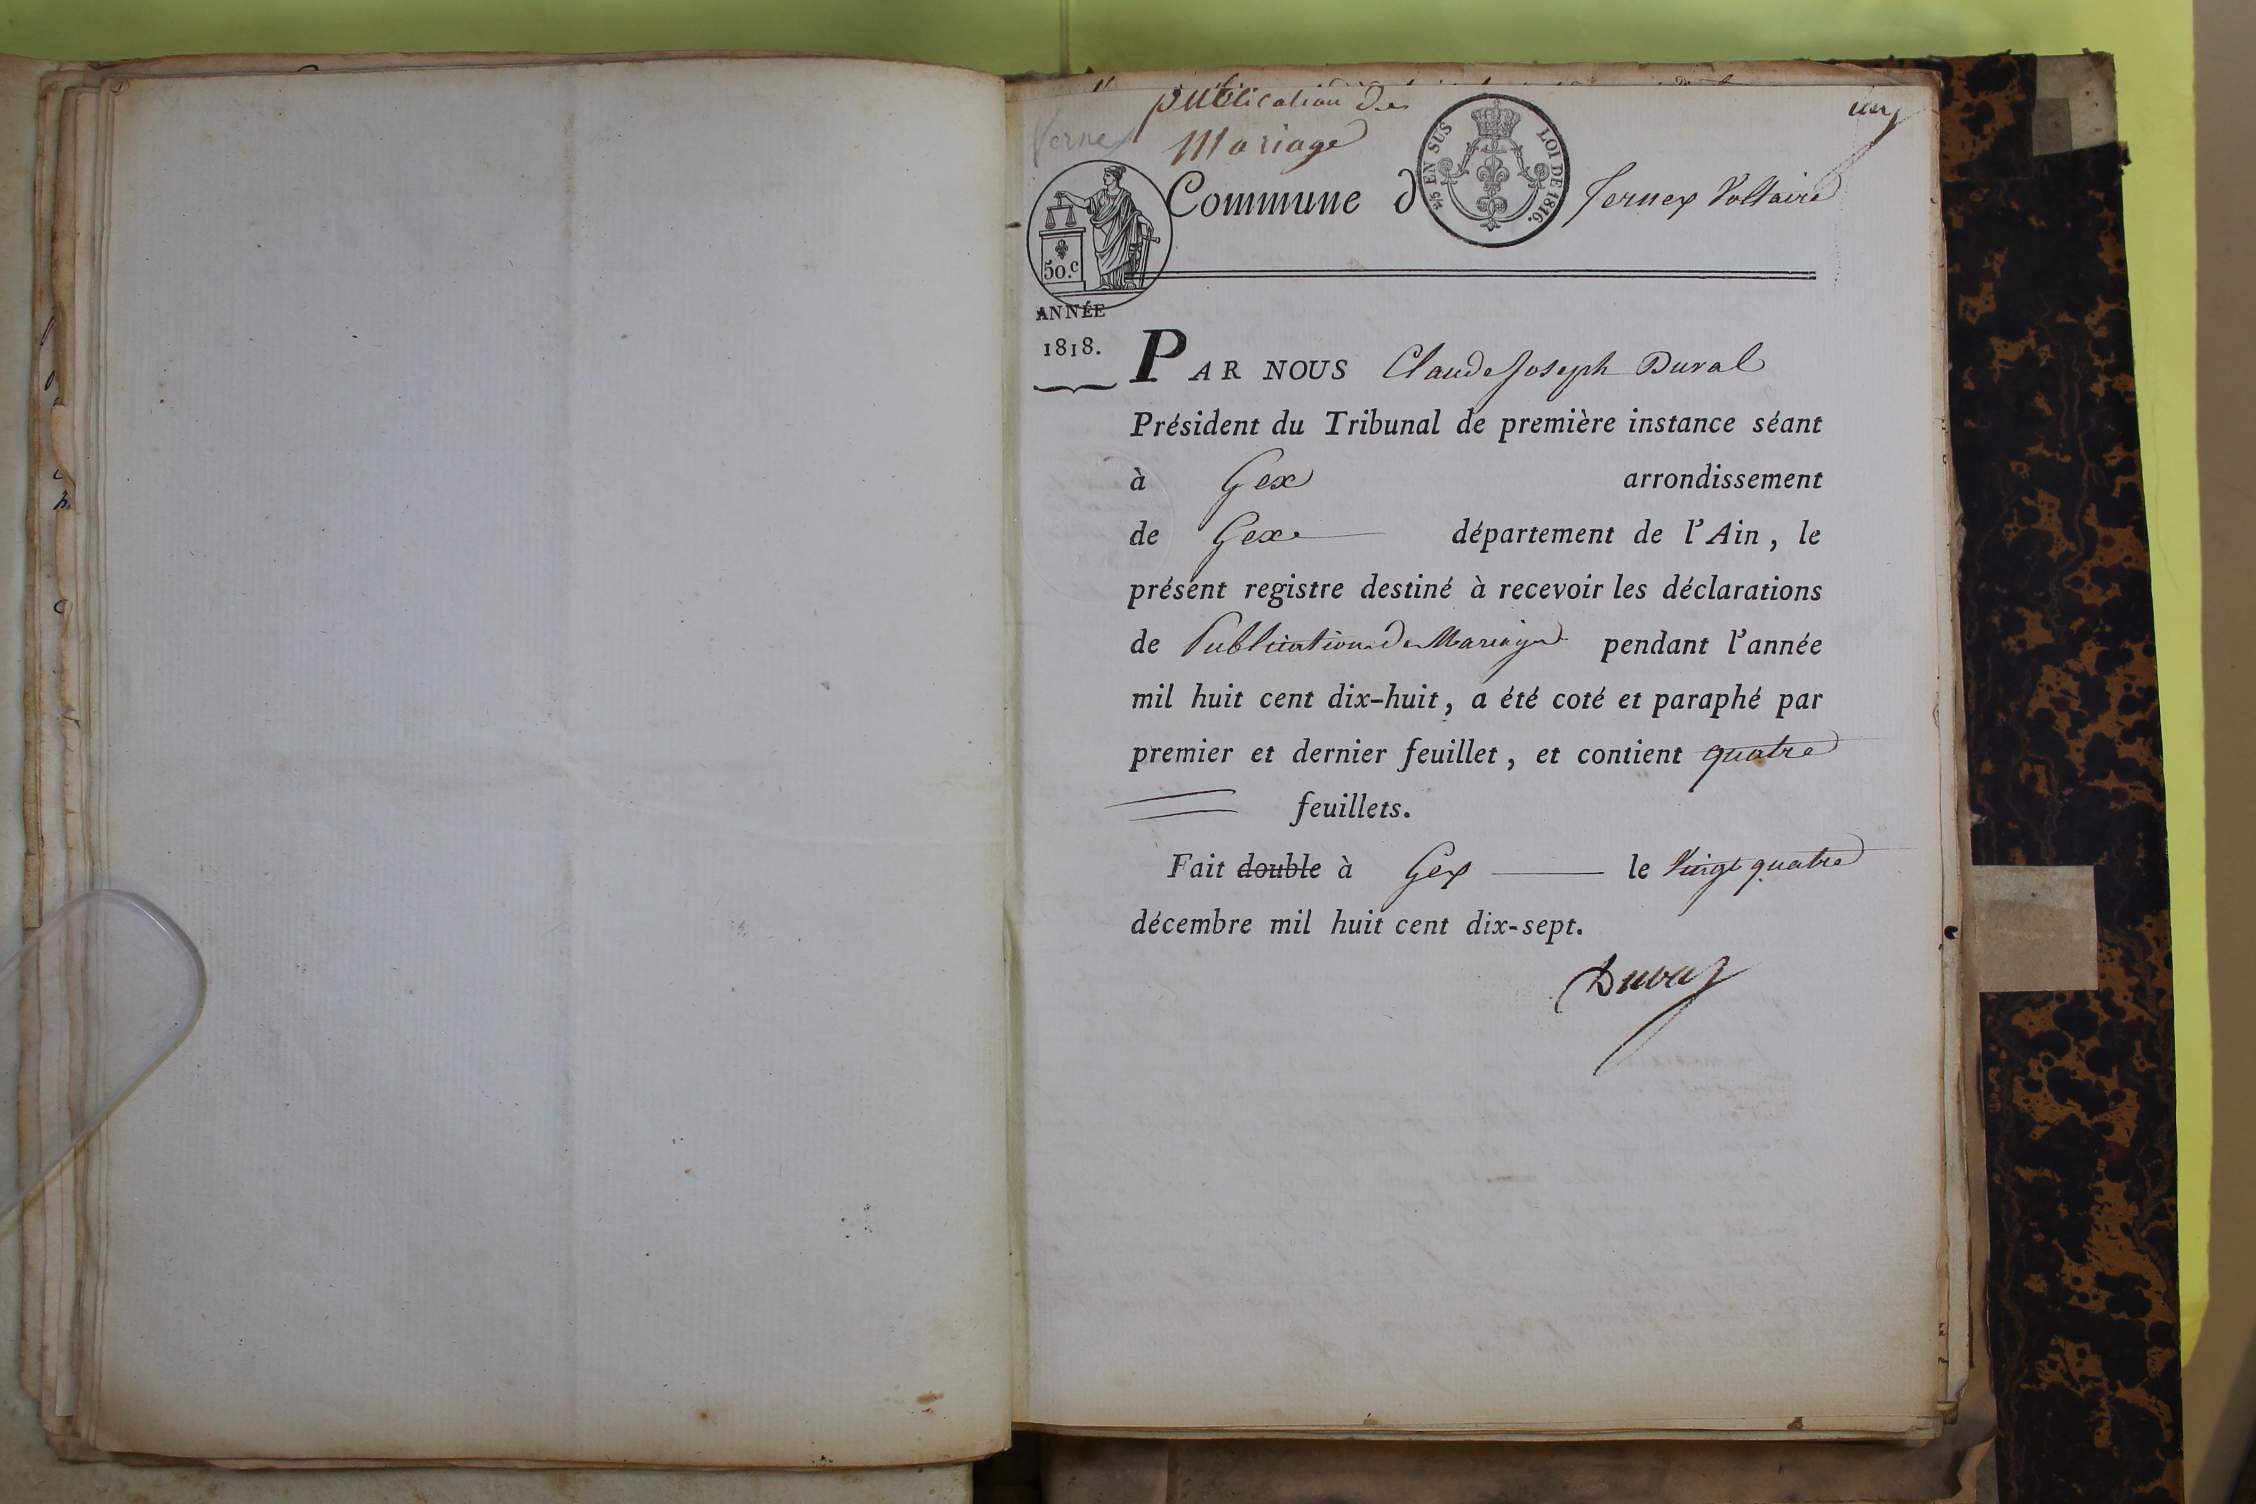 publication de
Mariage
un
Fernex
Commune d Fernex Voltaire
2/5 EN SUS LOI DE 1816.
50.c
ANNÉE
1818.
PAR NOUS Claude Joseph Duval
Président du Tribunal de première instance séant
à Gex arrondissement
de Gex département de l'Ain, le
présent registre destiné à recevoir les déclarations
de Publication de Mariage pendant l'année
mil huit cent dix-huit, a été coté et paraphé par
premier et dernier feuillet, et contient quatre
feuillets.
Fait double à Gex le Vingt quatre
décembre mil huit cent dix-sept.
Duval